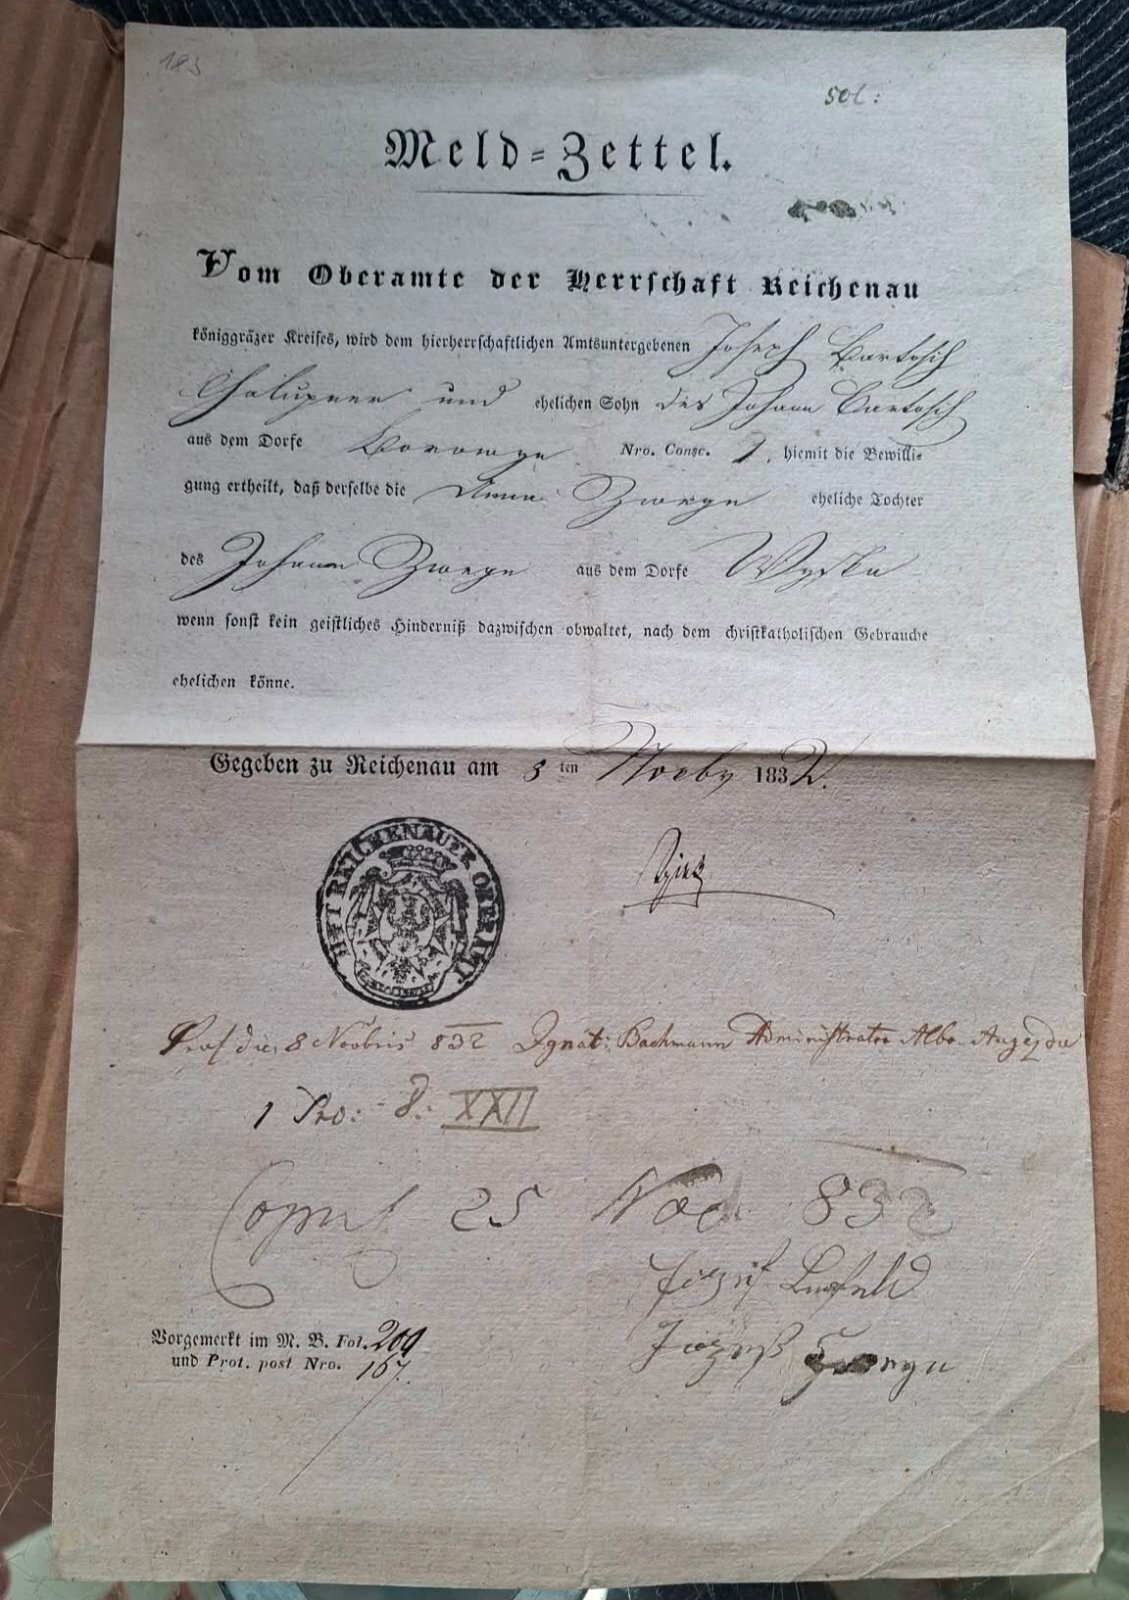 183
50t:
Meld=Zettel.
Vom Oberamte der Herrschaft Reichenau
königgräzer Kreises, wird dem hierherrschaftlichen Amtsuntergebenen Joseph Bartosch
Chalupner und ehelichen Sohn des Johann Bartosch
aus dem Dorfe Nro. Consc. 1, hiemit die Bewilli=
gung ertheilt, daß derselbe die Anna eheliche Tochter
des Johann aus dem Dorfe
wenn sonst kein geistliches Hinderniß dazwischen obwaltet, nach dem christkatholischen Gebrauche
ehelichen könne.
Gegeben zu Reichenau am 8 ten Novbr 1832.
REICHENAUER OBERAMT
8 Novbris 832 Ignat: Bachmann Administrator Albo
1 Pro: 8: XXII
Copul 25 832
Vorgemerkt im M. B. Fol. 209
und Prot. post Nro. 167.